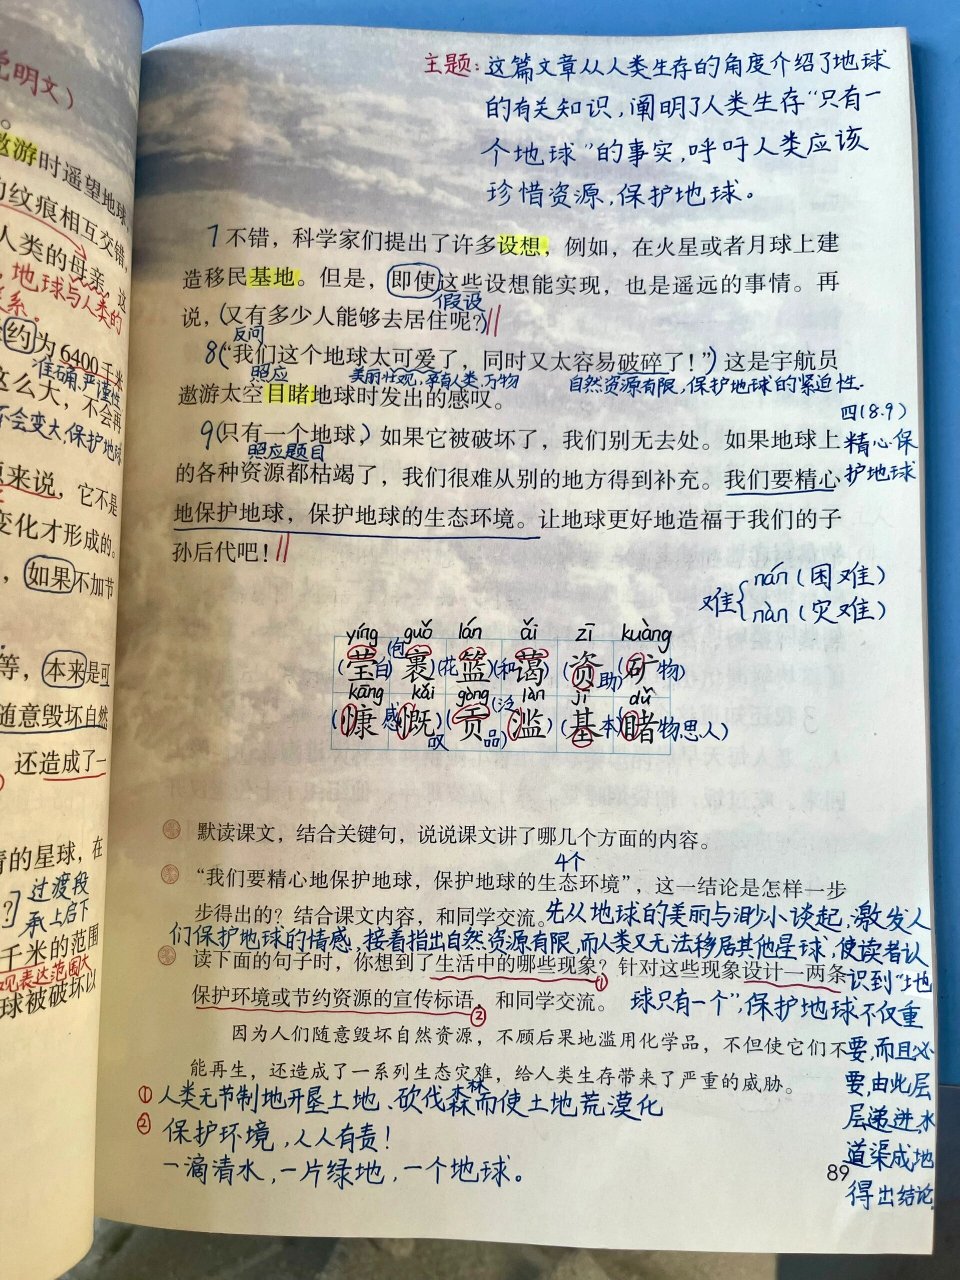 说明文）
。
遨游时遥望地球,
的纹痕相互交错,
人类的母亲,这
,地球与人类的
关系。
约为6400千米
准确,严谨性
这么大,不会再
不会变大,保护地球
来说,它不是
变化才形成的。
,如果不加节
等,本来是可
随意毁坏自然
还造成了一
的星球,在
?]过渡段
承上启下
千米的范围
观表达范围大
球被破坏以
主题:这篇文章从人类生存的角度介绍了地球
的有关知识,阐明了人类生存“只有一
个地球”的事实,呼吁人类应该
珍惜资源,保护地球。
7不错，科学家们提出了许多设想，例如，在火星或者月球上建
造移民基地。但是，即使这些设想能实现，也是遥远的事情。再
假设
说，(又有多少人能够去居住呢?)||
反问
8(“我们这个地球太可爱了，同时又太容易破碎了！”)这是宇航员
照应 美丽壮观,孕育人类,万物 自然资源有限,保护地球的紧迫性.
遨游太空目睹地球时发出的感叹。
四(8.9)
9(只有一个地球,)如果它被破坏了，我们别无去处。如果地球上
精心保
照应题目
的各种资源都枯竭了，我们很难从别的地方得到补充。我们要精心
护地球
地保护地球，保护地球的生态环境。让地球更好地造福于我们的子
孙后代吧！||
难{nán(困难)
nàn(灾难)
yíng guǒ lán ǎi zī kuàng
(莹白)(包裹)(花篮)(和蔼)(资助)(矿物)
kāng kǎi gòng làn jī dǔ
(慷慨)(感慨)叹(贡品)(泛滥)(基本)(睹物思人)
默读课文，结合关键句，说说课文讲了哪几个方面的内容。
4个
“我们要精心地保护地球，保护地球的生态环境”，这一结论是怎样一步
步得出的？结合课文内容，和同学交流。先从地球的美丽与渺小谈起,激发人
们保护地球的情感,接着指出自然资源有限,而人类又无法移居其他星球,使读者认
读下面的句子时，你想到了生活中的哪些现象？①针对这些现象设计一两条
识到“地
保护环境或节约资源的宣传标语，②和同学交流。
球只有一个”,保护地球不仅重
因为人们随意毁坏自然资源，不顾后果地滥用化学品，不但使它们不
要,而且必
能再生，还造成了一系列生态灾难，给人类生存带来了严重的威胁。
要,由此层
①人类无节制地开垦土地、砍伐森林而使土地荒漠化
层递进,水
②保护环境,人人有责!
道渠成地
一滴清水,一片绿地,一个地球。
得出结论
89